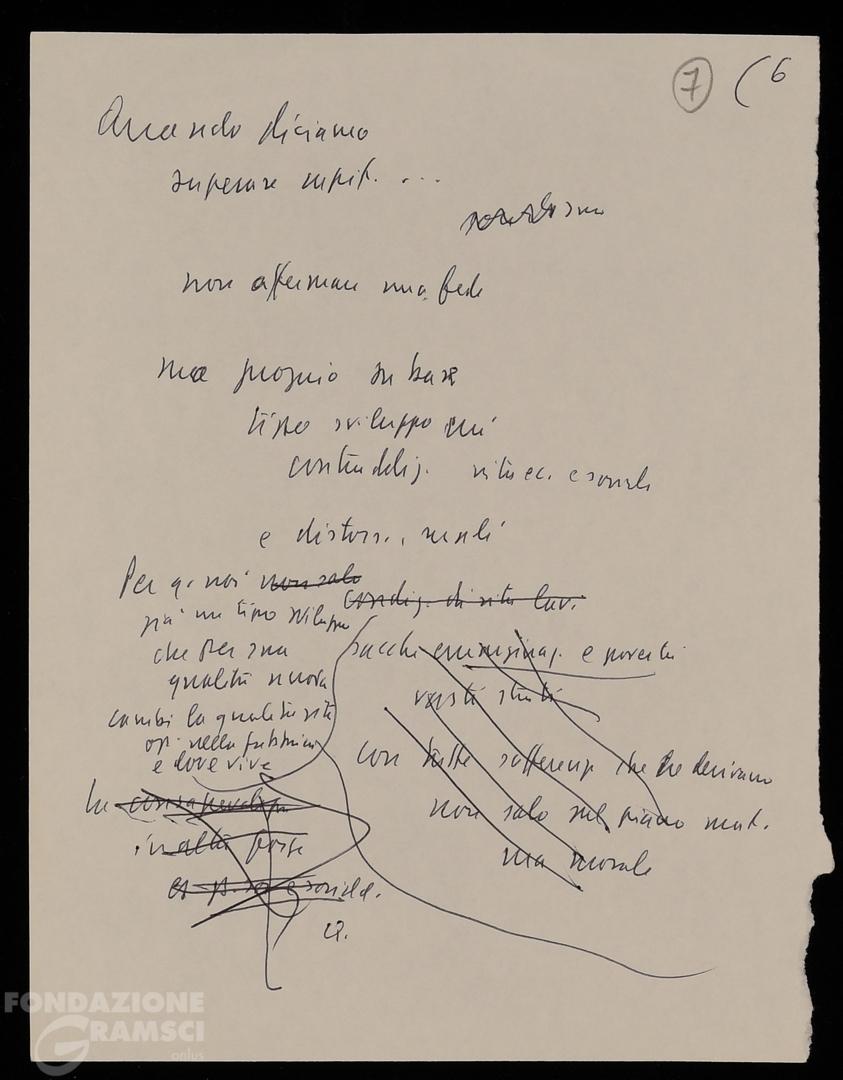 7 ( 6
Quando diciamo
superare capit. ...
socialismo
non affermare una fede
ma proprio su base
tipo sviluppo qui
contraddiz. vita ec. e sociale
e distors.
Per q. noi non solo
condiz. di vita lav.
più un tipo sviluppo
che per sua
qualità nuova
cambi la qualità vita
op. nella fabbrica
e dove vive
sacche emarginaz. e povertà
vasti strati
con tutte sofferenze che ne derivano
non solo sul piano mat.
ma morale
la consapevolezza
in altre forze
e sociale.
FONDAZIONE
GRAMSCI
onlus